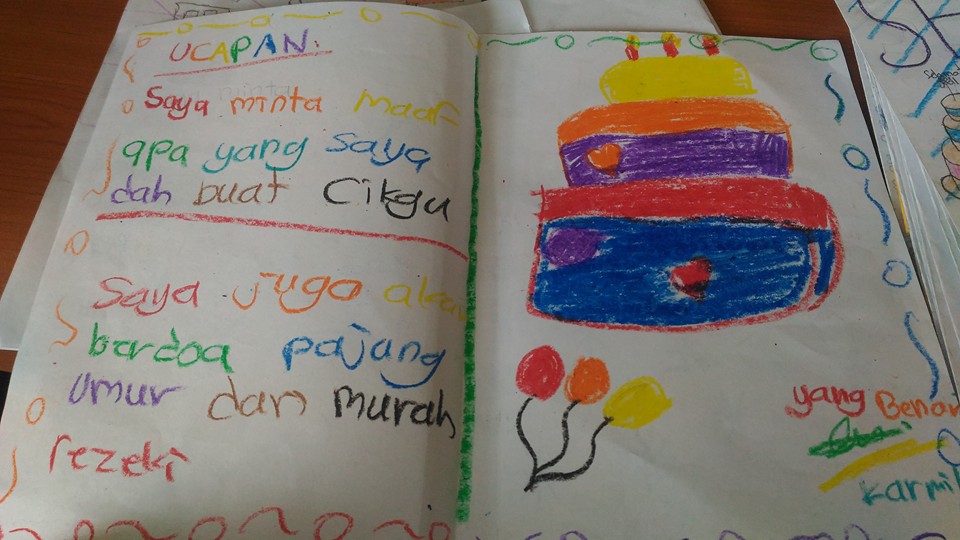 UCAPAN:
Saya minta maaf
apa yang saya
dah buat Cikgu
Saya juga akan
bardoa pajang
Umur dan murah
rezeki
yang Benar
Karmil